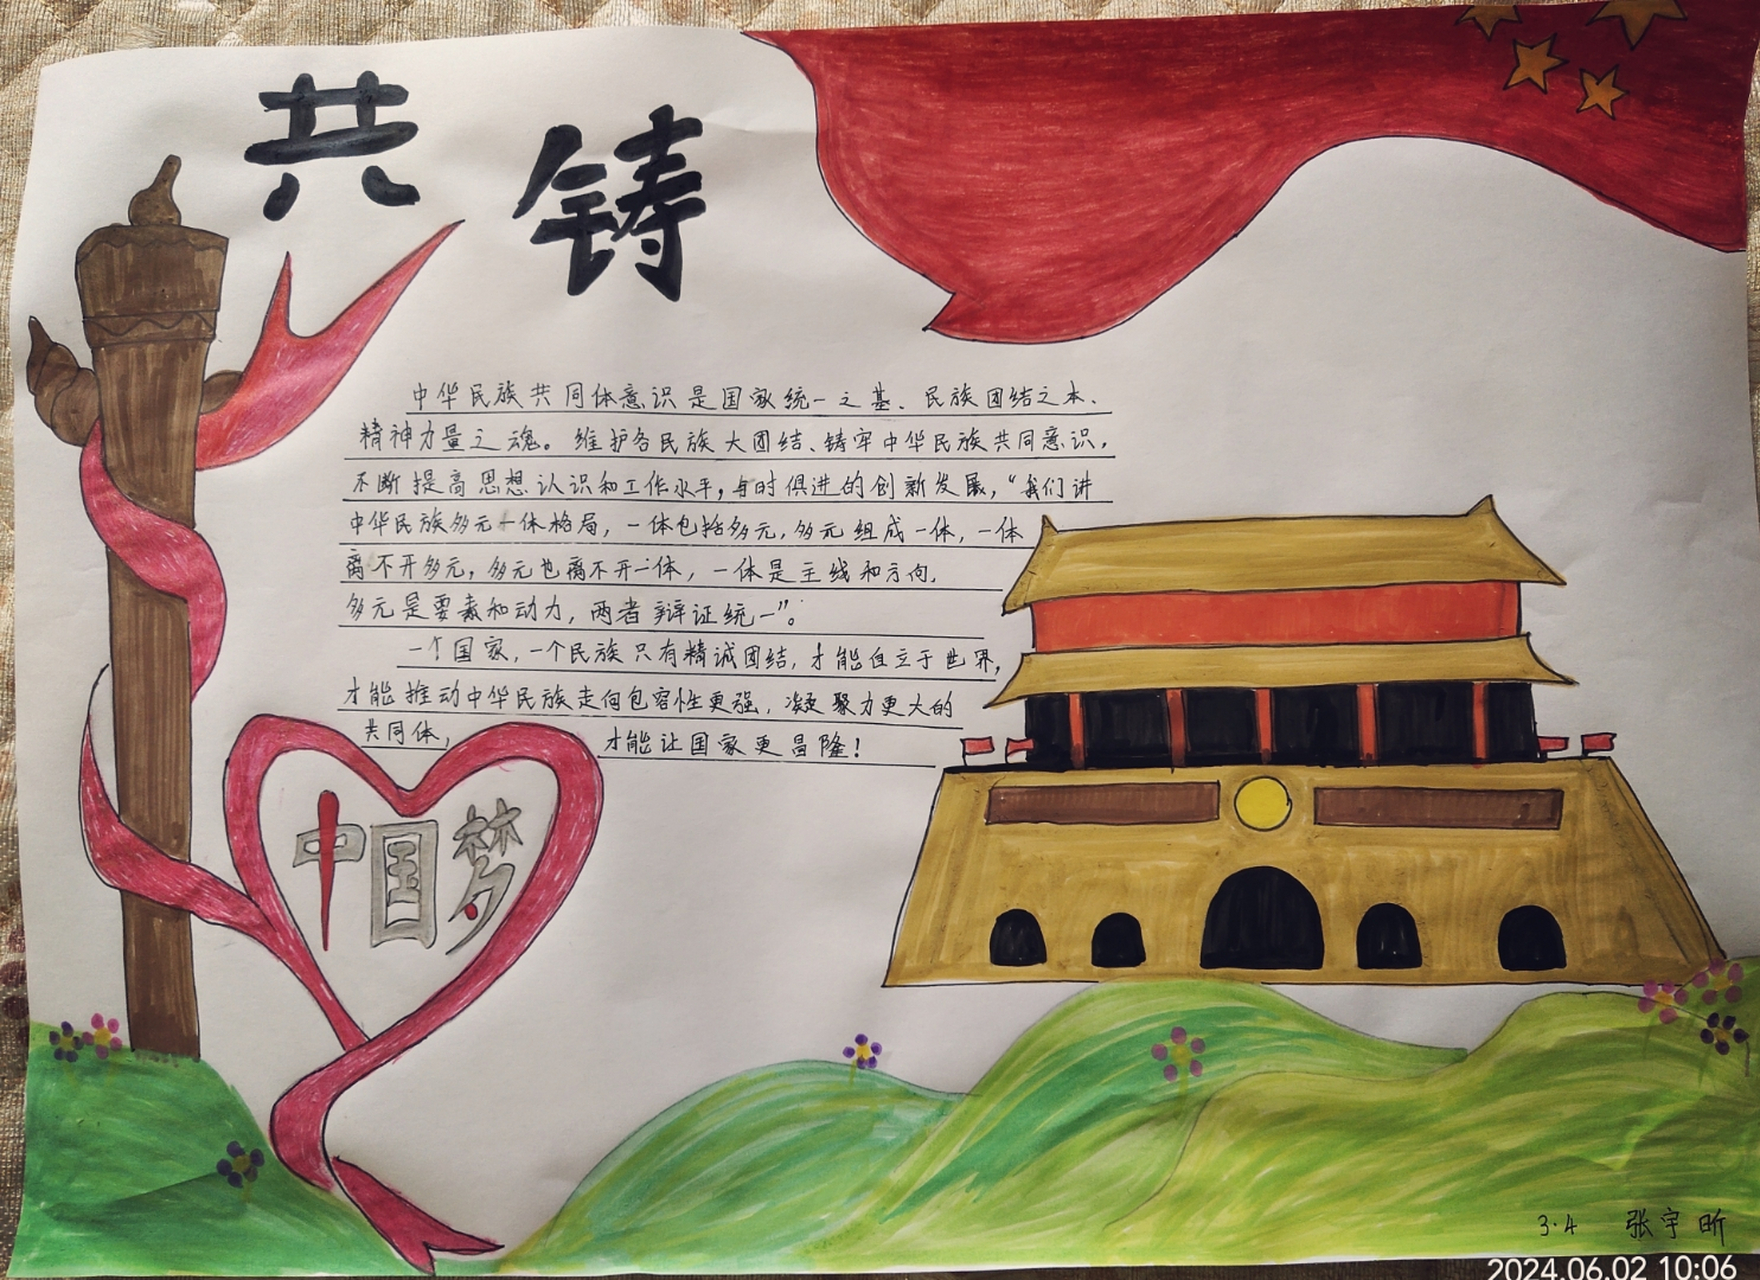 共铸
中华民族共同体意识是国家统一之基、民族团结之本、
精神力量之魂。维护各民族大团结、铸牢中华民族共同意识，
不断提高思想认识和工作水平，与时俱进的创新发展，“我们讲
中华民族多元一体格局，一体包括多元，多元组成一体，一体
离不开多元，多元也离不开一体，一体是主线和方向，
多元是要素和动力，两者辩证统一”。
一个国家，一个民族只有精诚团结，才能自立于世界，
才能推动中华民族走向包容性更强，凝聚力更大的
共同体，才能让国家更昌隆！
中国梦
3.4 张宇昕
2024.06.02 10:06